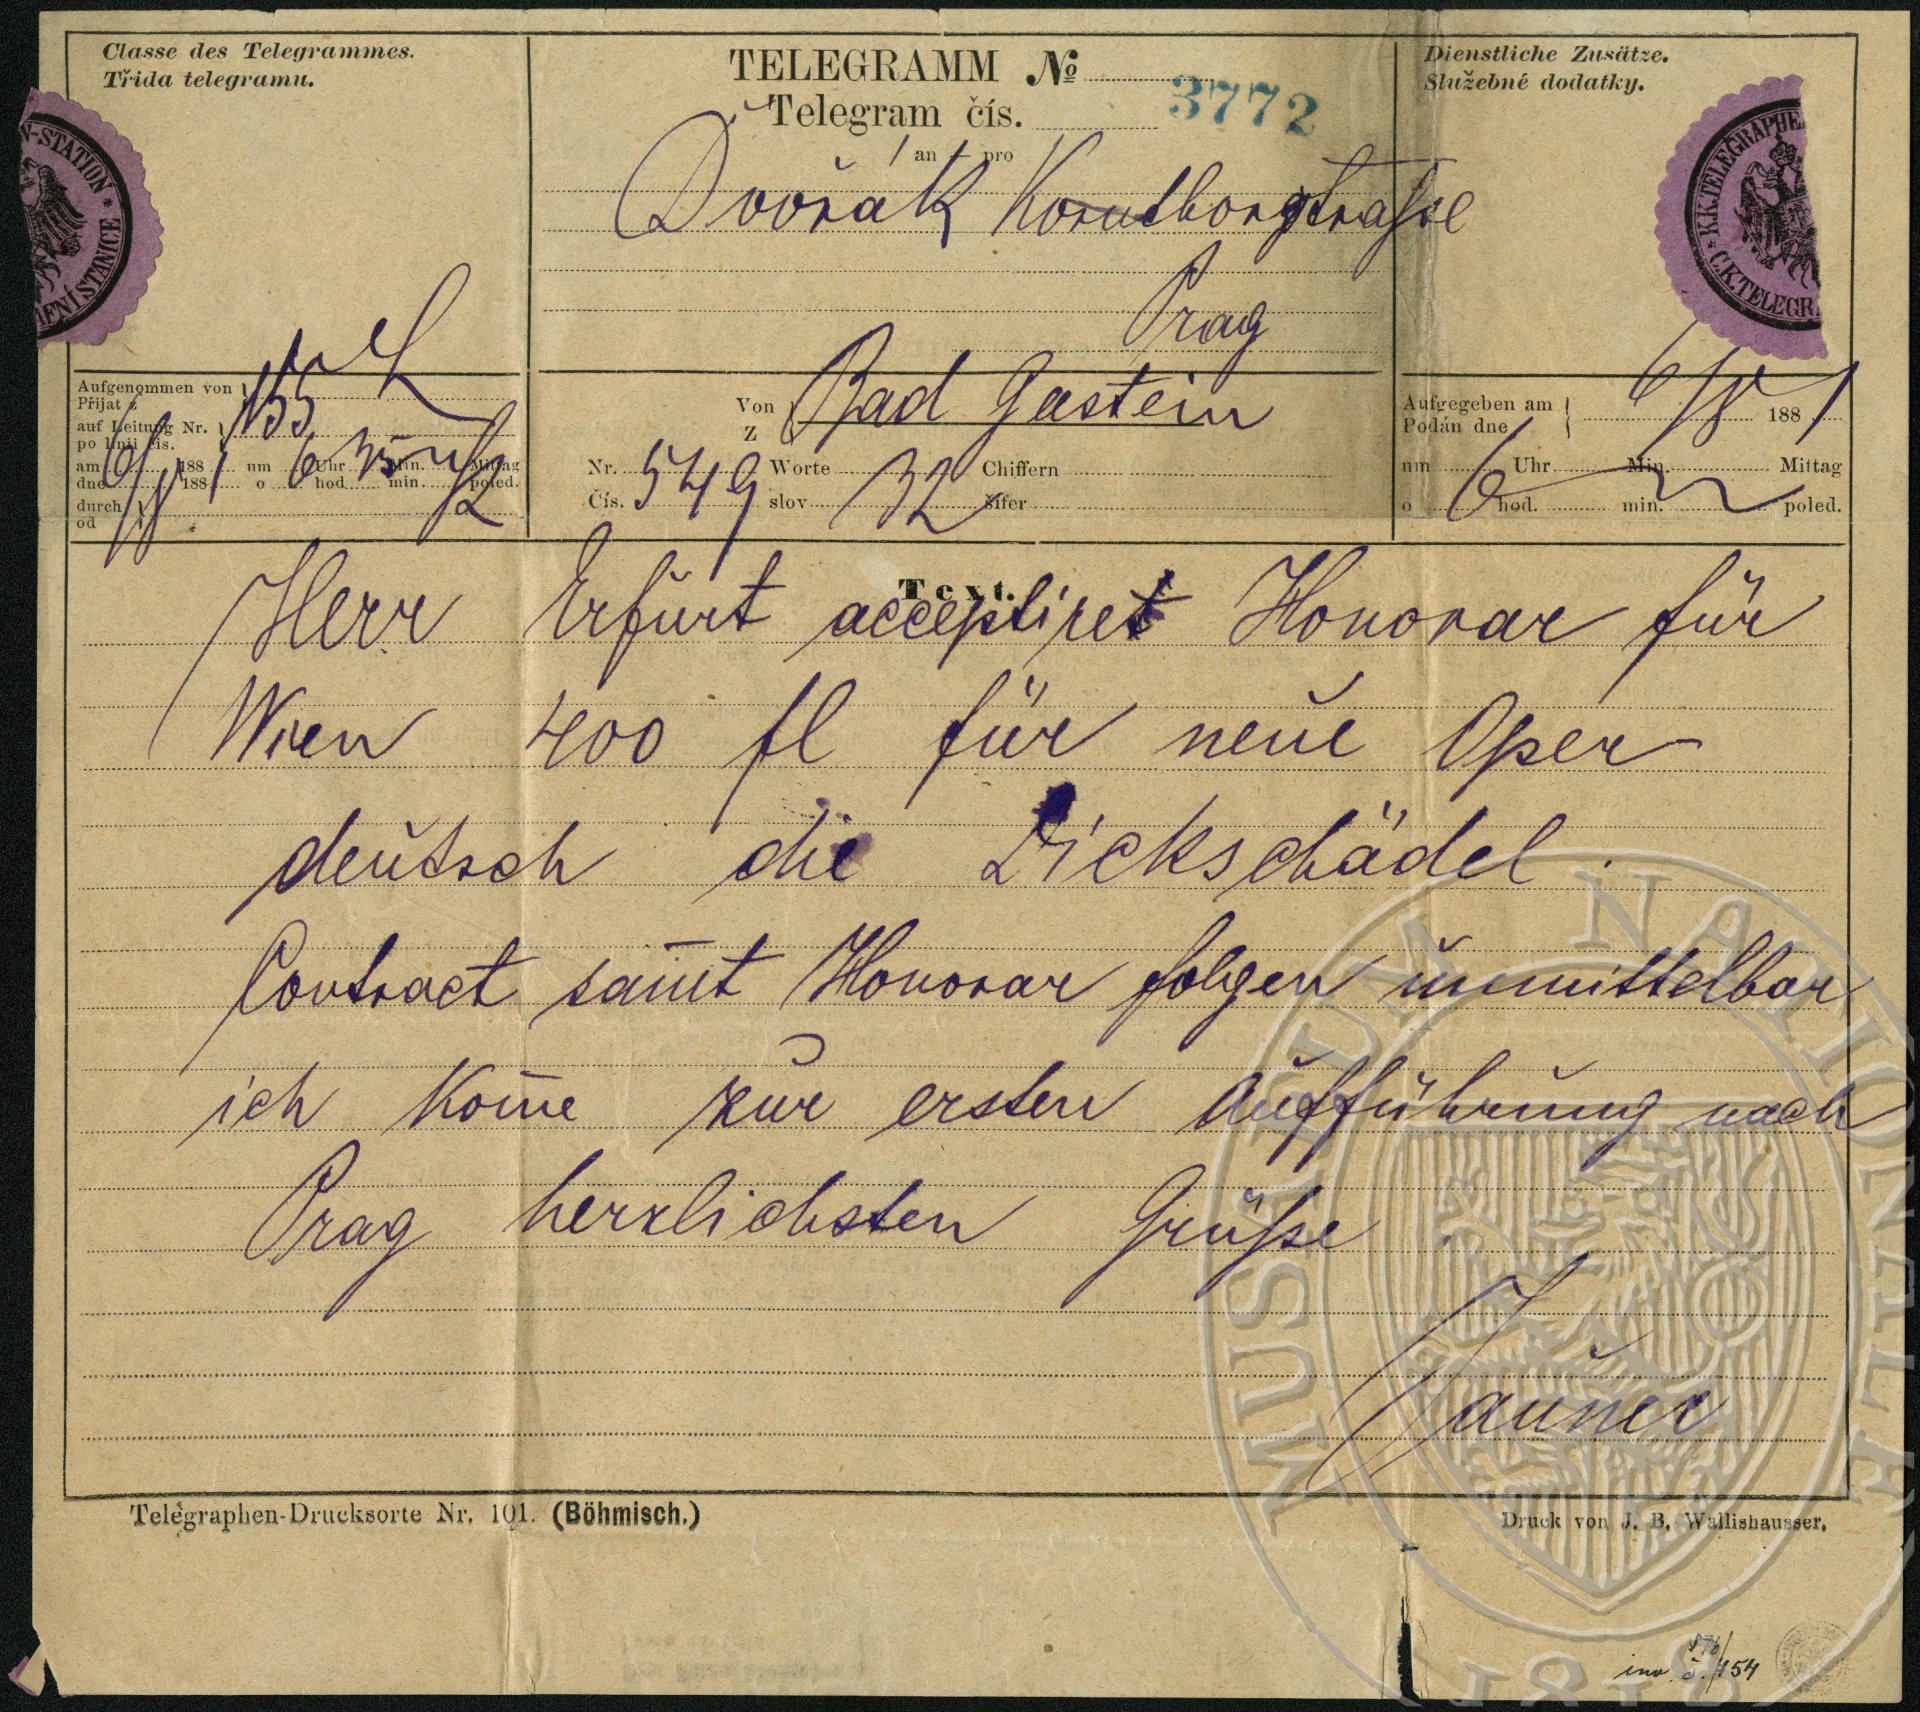 Classe des Telegrammes.
Třída telegramu.
TELEGRAMM No
Telegram čís.
3772
Dienstliche Zusätze.
Služebné dodatky.
an pro
Dvořák Kornthorgstraße
Prag
-STATION
STANICE
K.K.TELEGRAPHE
C.K.TELEGR
Aufgenommen von
Přijat z
auf Leitung Nr. 155
po linii čis.
am 6/8 188 1 um 6 Uhr 35 Min. Mittag
dne 188 o hod. min. poled.
durch
od
Von Bad Gastein
Z
Nr. 549 Worte 32 Chiffern
Čís. slov šifer
Aufgegeben am 6/8 188 1
Podán dne
um 6 Uhr Min. Mittag
o hod. min. poled.
Text.
Herr Erfurt acceptiret Honorar für
Wien 400 fl für neue Oper
deutsch die Dickschädel.
Contract sam̅t Honorar folgen unmittelbar
ich kom̅e zur ersten Aufführung nach
Prag herzlichsten Grüße.
Jauner
Telegraphen-Drucksorte Nr. 101. (Böhmisch.)
Druck von J. B. Wallishausser.
inv. č. /154
MUSAEUM NATIONALE
1818